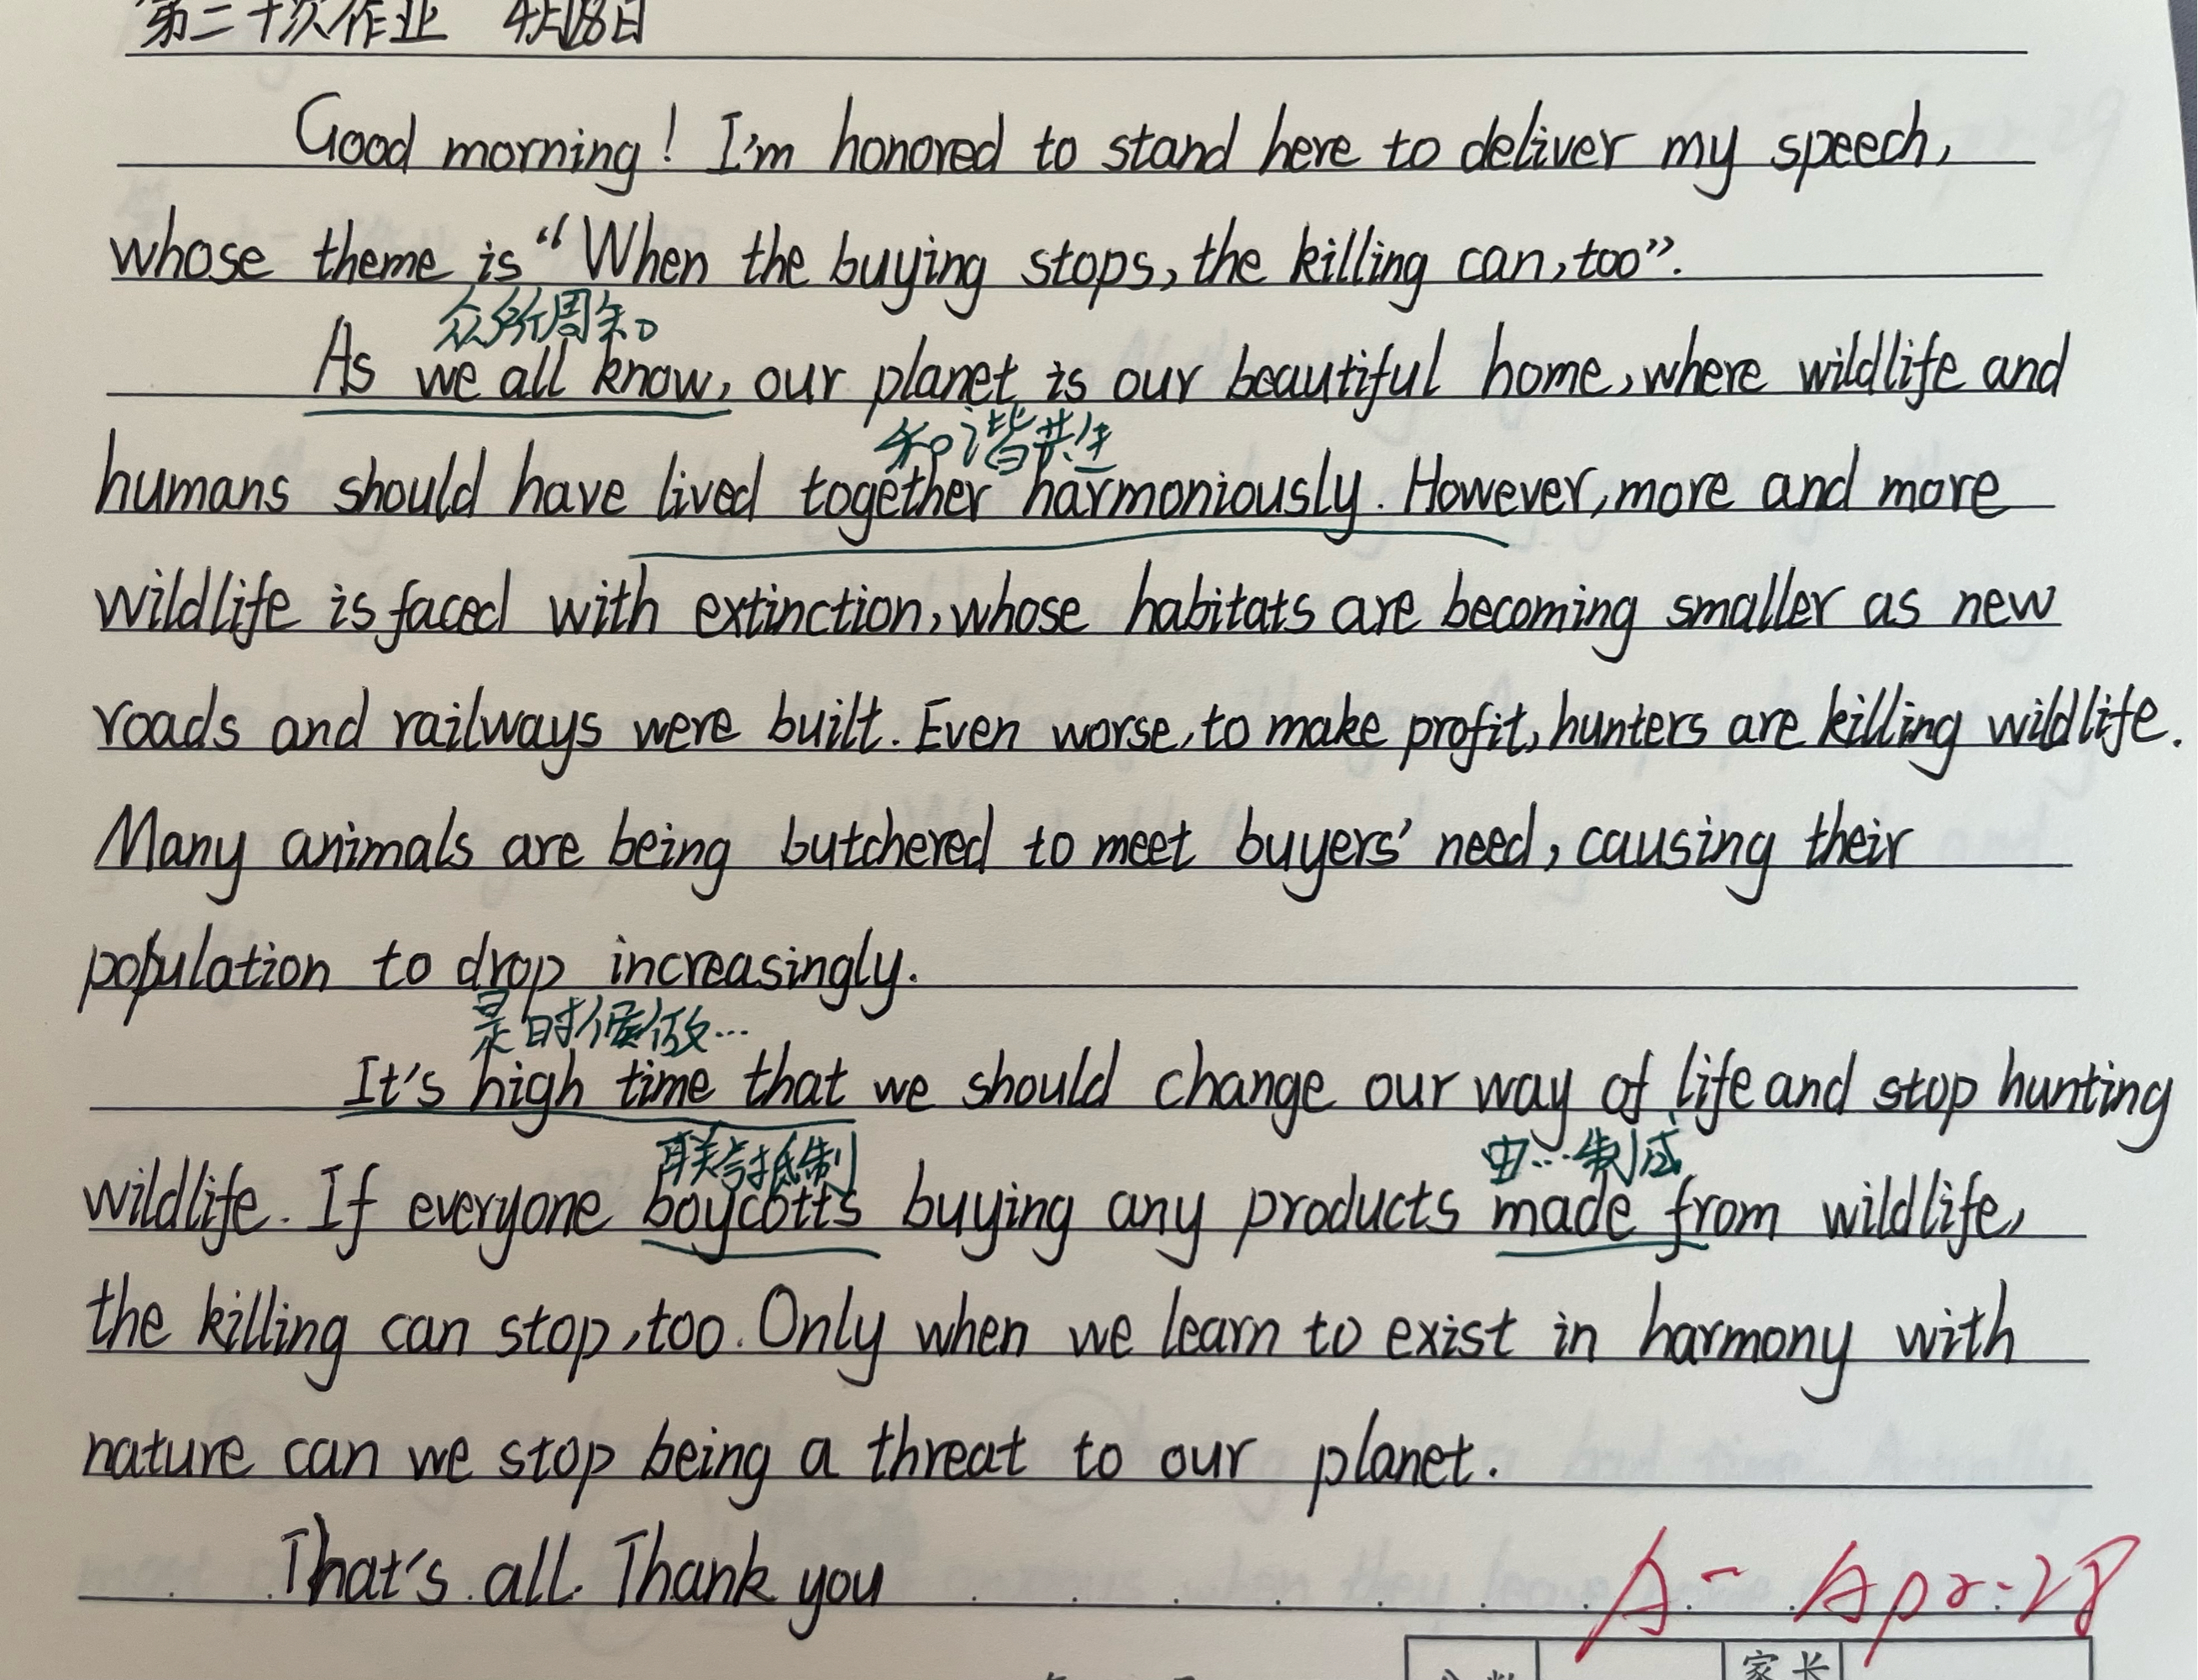 第二十次作业 4月18日
Good morning! I'm honored to stand here to deliver my speech,
whose theme is “When the buying stops, the killing can, too”.
众所周知
As we all know, our planet is our beautiful home, where wildlife and
和谐共生
humans should have lived together harmoniously. However, more and more
wildlife is faced with extinction, whose habitats are becoming smaller as new
roads and railways were built. Even worse, to make profit, hunters are killing wildlife.
Many animals are being butchered to meet buyers' need, causing their
population to drop increasingly.
是时候做…
It's high time that we should change our way of life and stop hunting
联合抵制 由…制成
wildlife. If everyone boycotts buying any products made from wildlife,
the killing can stop, too. Only when we learn to exist in harmony with
nature can we stop being a threat to our planet.
That's all. Thank you
A- Apr.28
家长